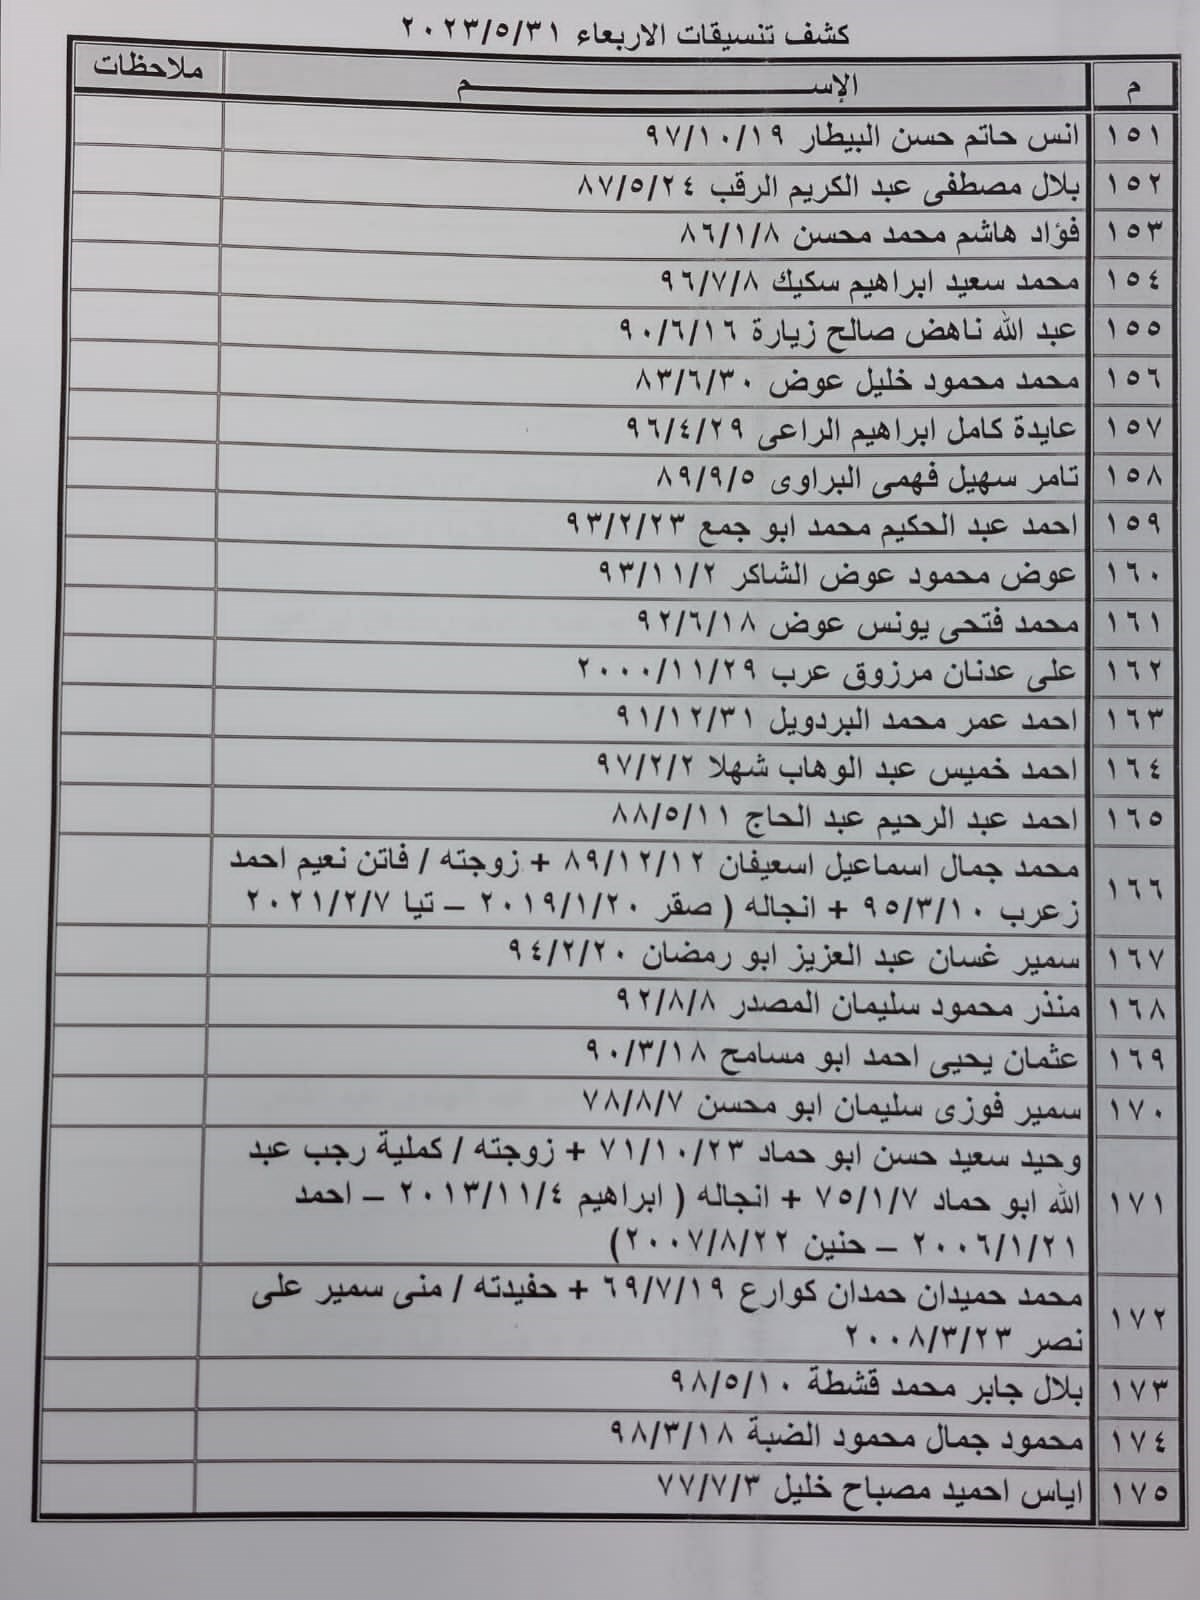 كشف تنسيقات الاربعاء ٢٠٢٣/٥/٣١
م الإســـــــــــــــــم ملاحظات
١٥١ انس حاتم حسن البيطار ٩٧/١٠/١٩
١٥٢ بلال مصطفى عبد الكريم الرقب ٨٧/٥/٢٤
١٥٣ فؤاد هاشم محمد محسن ٨٦/١/٨
١٥٤ محمد سعيد ابراهيم سكيك ٩٦/٧/٨
١٥٥ عبد الله ناهض صالح زيارة ٩٠/٦/١٦
١٥٦ محمد محمود خليل عوض ٨٣/٦/٣٠
١٥٧ عايدة كامل ابراهيم الراعى ٩٦/٤/٢٩
١٥٨ تامر سهيل فهمى البراوى ٨٩/٩/٥
١٥٩ احمد عبد الحكيم محمد ابو جمع ٩٣/٢/٢٣
١٦٠ عوض محمود عوض الشاكر ٩٣/١١/٢
١٦١ محمد فتحى يونس عوض ٩٢/٦/١٨
١٦٢ على عدنان مرزوق عرب ٢٠٠٠/١١/٢٩
١٦٣ احمد عمر محمد البردويل ٩١/١٢/٣١
١٦٤ احمد خميس عبد الوهاب شهلا ٩٧/٢/٢
١٦٥ احمد عبد الرحيم عبد الحاج ٨٨/٥/١١
١٦٦ محمد جمال اسماعيل اسعيفان ٨٩/١٢/١٢ + زوجته / فاتن نعيم احمد
زعرب ٩٥/٣/١٠ + انجاله ( صقر ٢٠١٩/١/٢٠ – تيا ٢٠٢١/٢/٧
١٦٧ سمير غسان عبد العزيز ابو رمضان ٩٤/٢/٢٠
١٦٨ منذر محمود سليمان المصدر ٩٢/٨/٨
١٦٩ عثمان يحيى احمد ابو مسامح ٩٠/٣/١٨
١٧٠ سمير فوزى سليمان ابو محسن ٧٨/٨/٧
١٧١ وحيد سعيد حسن ابو حماد ٧١/١٠/٢٣ + زوجته / كملية رجب عبد
الله ابو حماد ٧٥/١/٧ + انجاله ( ابراهيم ٢٠١٣/١١/٤ – احمد
٢٠٠٦/١/٢١ – حنين ٢٠٠٧/٨/٢٢)
١٧٢ محمد حميدان حمدان كوارع ٦٩/٧/١٩ + حفيدته / منى سمير على
نصر ٢٠٠٨/٣/٢٣
١٧٣ بلال جابر محمد قشطة ٩٨/٥/١٠
١٧٤ محمود جمال محمود الضبة ٩٨/٣/١٨
١٧٥ اياس احميد مصباح خليل ٧٧/٧/٣